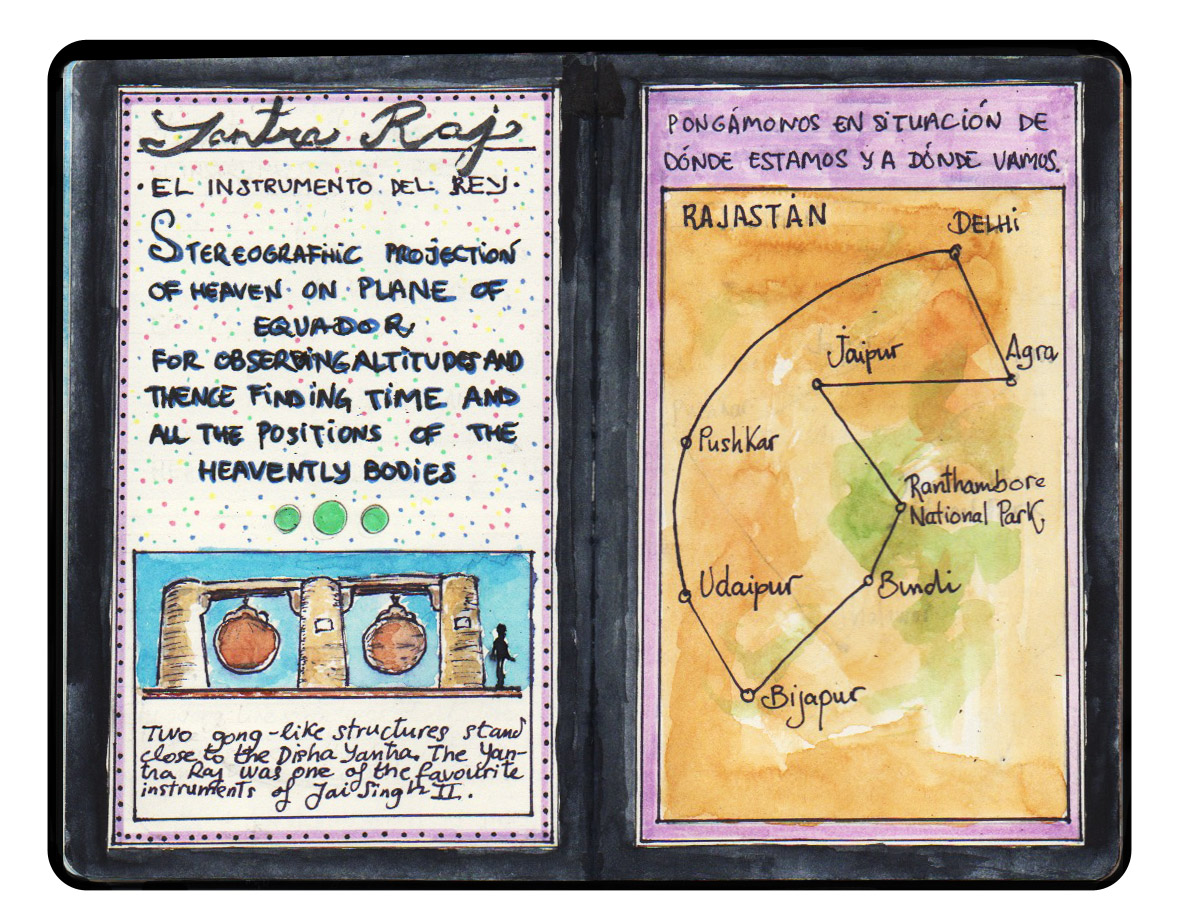 Yantra Raj
·EL INSTRUMENTO DEL REY·
STEREOGRAFHIC PROJECTION
OF HEAVEN ON PLANE OF
EQUADOR
FOR OBSERBING ALTITUDES AND
THENCE FINDING TIME AND
ALL THE POSITIONS OF THE
HEAVENTLY BODIES
Two gong-like structures stand
close to the Disha Yantra. The Yan-
tra Raj was one of the favourite
instruments of Jai Singh II.
PONGÁMONOS EN SITUACIÓN DE
DÓNDE ESTAMOS Y A DÓNDE VAMOS.
RAJASTÁN
DELHI
Jaipur
Agra
Pushkar
Ranthambore
National Park
Udaipur
Bundi
Bijapur